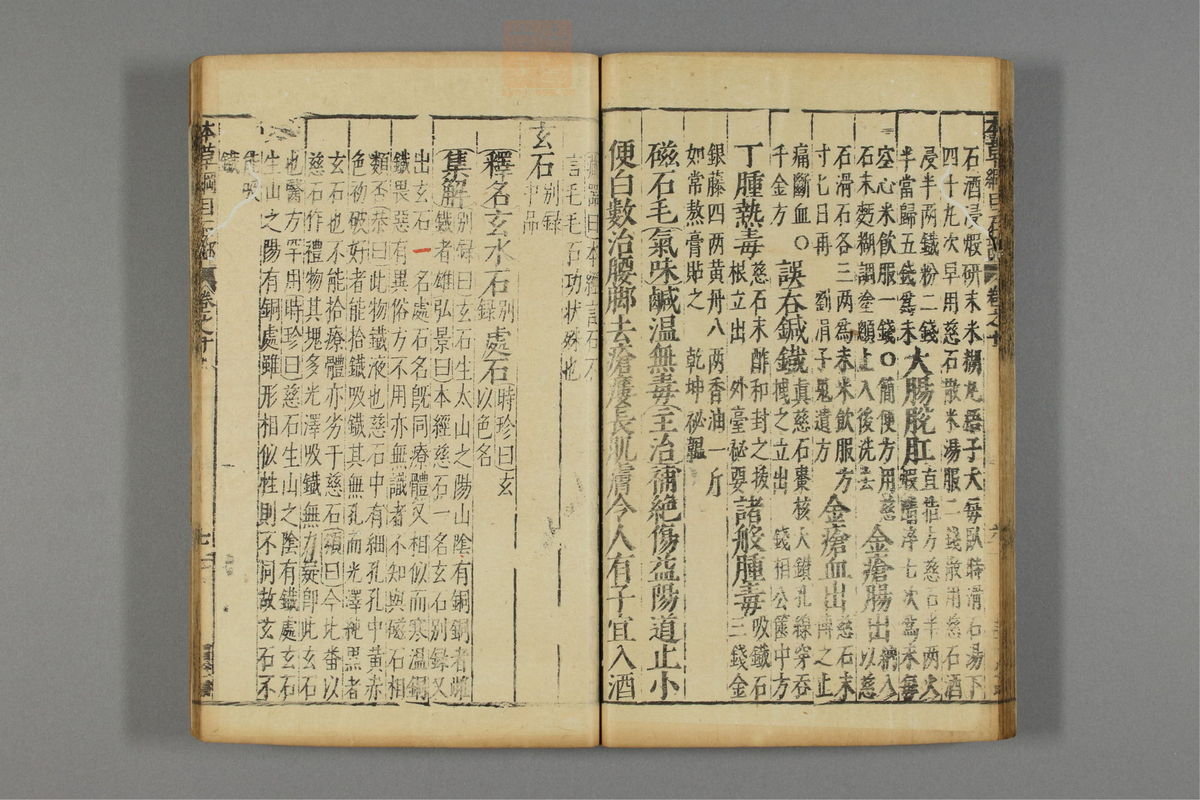 石酒浸煅研末米糊丸梧子大每臥時滑石湯下
四十丸次早用慈石散米湯服二錢散用慈石酒
浸半兩鐵粉二錢
半當歸五錢爲末
大腸脫肛
直指方慈石半兩火
煅醋淬七次爲末每
空心米飲服一錢○簡便方用慈
石末麪糊調塗顖上入後洗去
金瘡腸出
納入以慈
石滑石各三兩爲末米飲服方
寸七日再 劉涓子鬼遺方
金瘡血出
慈石末
傅之止
痛斷血○
千金方
誤吞鍼鐵
真慈石棗核大鑽孔線穿吞
拽之立出 錢相公篋中方
丁腫熱毒
慈石末酢和封之拔
根立出 外臺秘要
諸般腫毒
吸鐵石
三錢金
銀藤四兩黃丹八兩香油一斤
如常熬膏貼之 乾坤秘韞
磁石毛氣味鹹溫無毒主治補絕傷益陽道止小
便白數治腰脚去瘡瘻長肌膚令人有子宜入酒
藏器曰本經言石不
言毛毛石功狀殊也
玄石
别録
中品
釋名玄水石
别
録
處石
時珍曰玄
以色名
集解
别録曰玄石生太山之陽山陰有銅銅者雌
鐵者雄弘景曰本經慈石一名玄石别録又
出玄石一名處石名旣同療體又相似而寒溫銅
鐵畏惡有異俗方不用亦無識者不知與磁石相
類否恭曰此物鐵液也慈石中有細孔孔中黃赤
色初破好者能拾鐵吸鐵其無孔而光澤純黑者
玄石也不能拾療體亦劣于慈石頌曰今北番以
慈石作禮物其塊多光澤吸鐵無力疑卽此玄石
也醫方罕用時珍曰慈石生山之陰有鐵處玄石
生山之陽有銅處雖形相似性則不同故玄石不
能吸
鐵
本草綱目
石部
卷之十